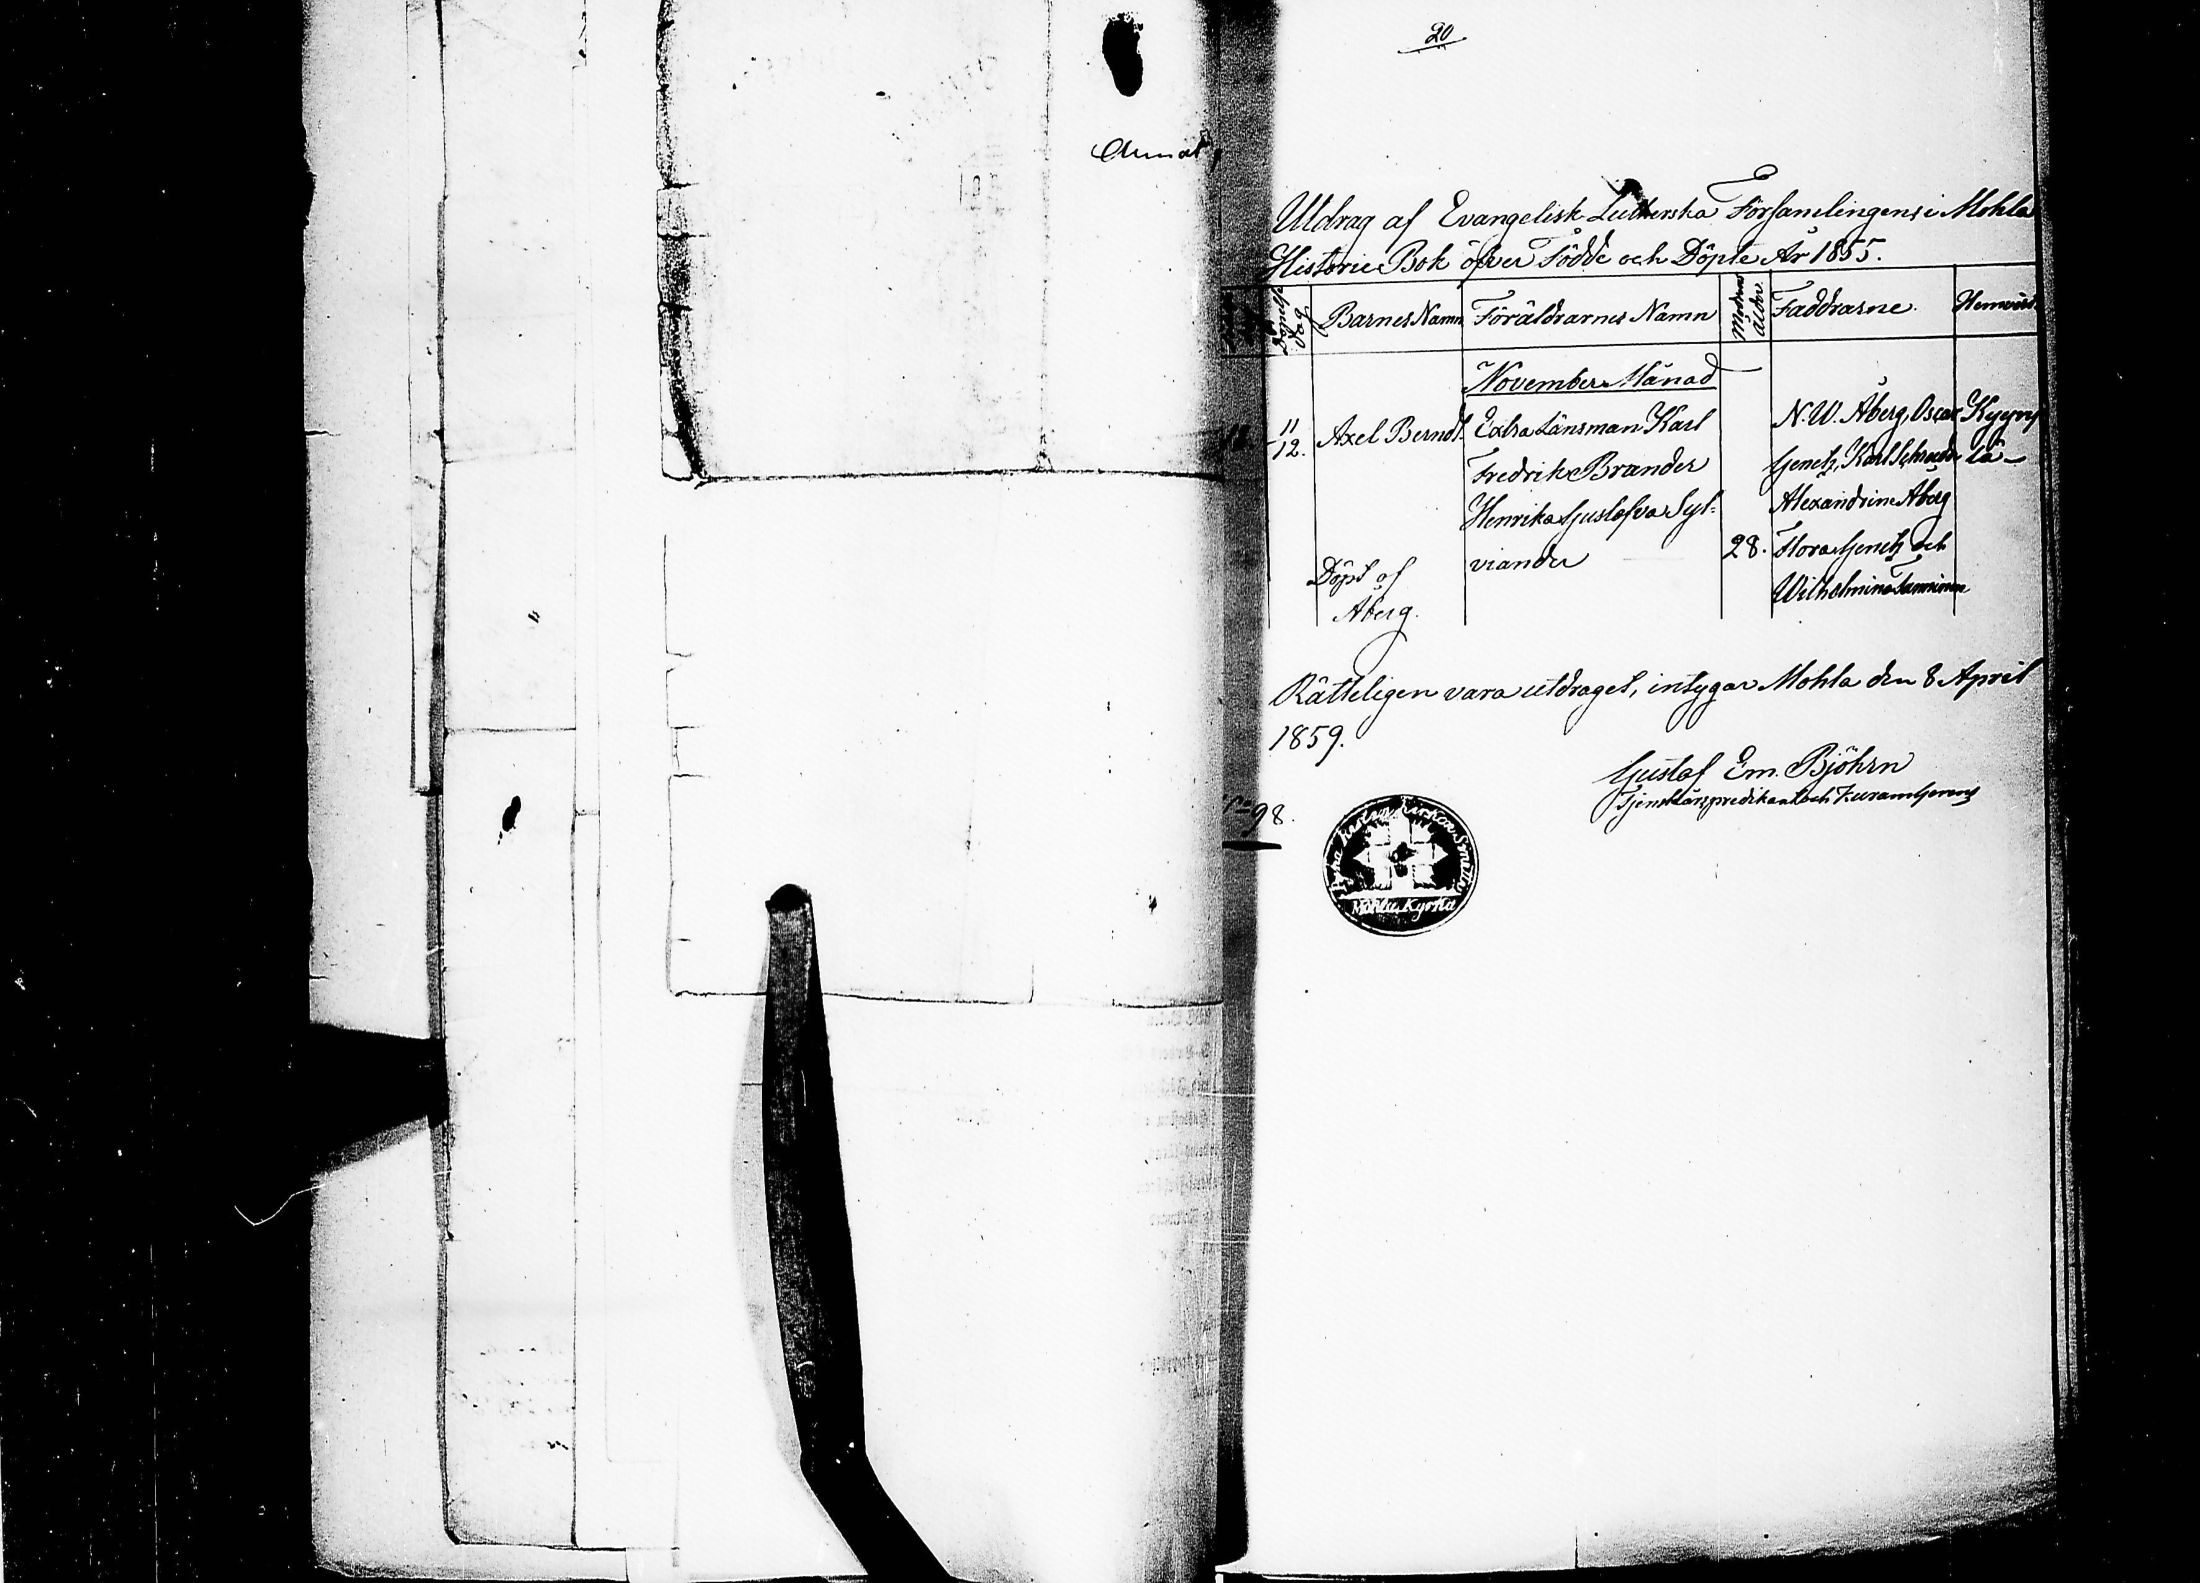 20
Annat,
Utdrag af Evangelisk Lutherska Församlingens i Mohla
Historie Bok öfver Födde och Döpte År 1855.
Döpelse dag. Barnes Namn Föräldrarnes Namn Modrens ålder. Faddrarne. Hemvist
November Månad
11/12. Axel Berndt. Extra Länsman Karl N. W. Åberg, Oscar Kyyrö
Fredrik Brander Genetz, Karl lä
Henrika Gustafva Syl= Alexandrine Åberg
viander 28. Flora Genetz och
Döpt af Wilhelmina
Åberg.
Rätteligen vara utdraget, intygar Mohla den 8 April
1859.
Gustaf Em. Björn
Tjenstårspredikant och
98.
Mohla Kyrka